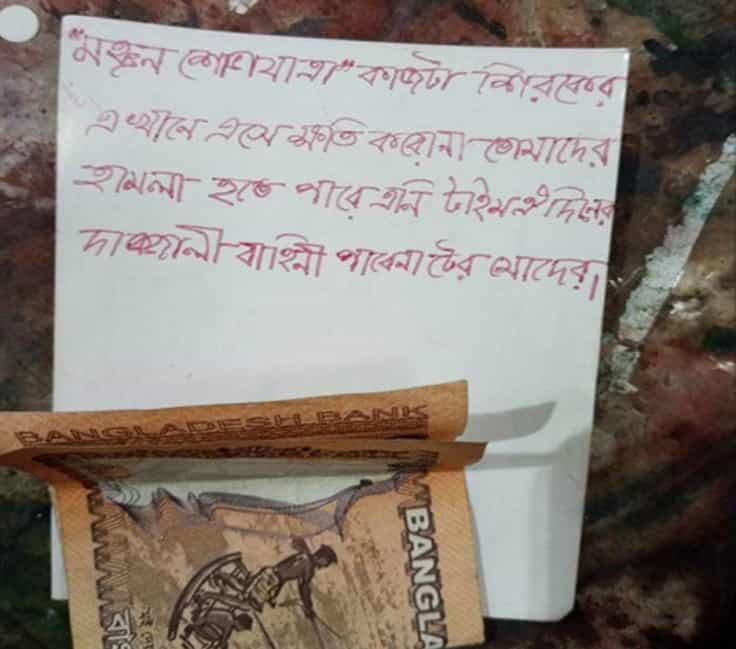 "মঙ্গল শোভাযাত্রা" কাজটা শিরকের
এখানে এসে ক্ষতি করোনা তোমাদের
হামলা হতে পারে এনি টাইম ঐদিনের
দাজ্জালী বাহিনী পাবেনা টের মোদের।
BANGLADESH BANK
BANGLA